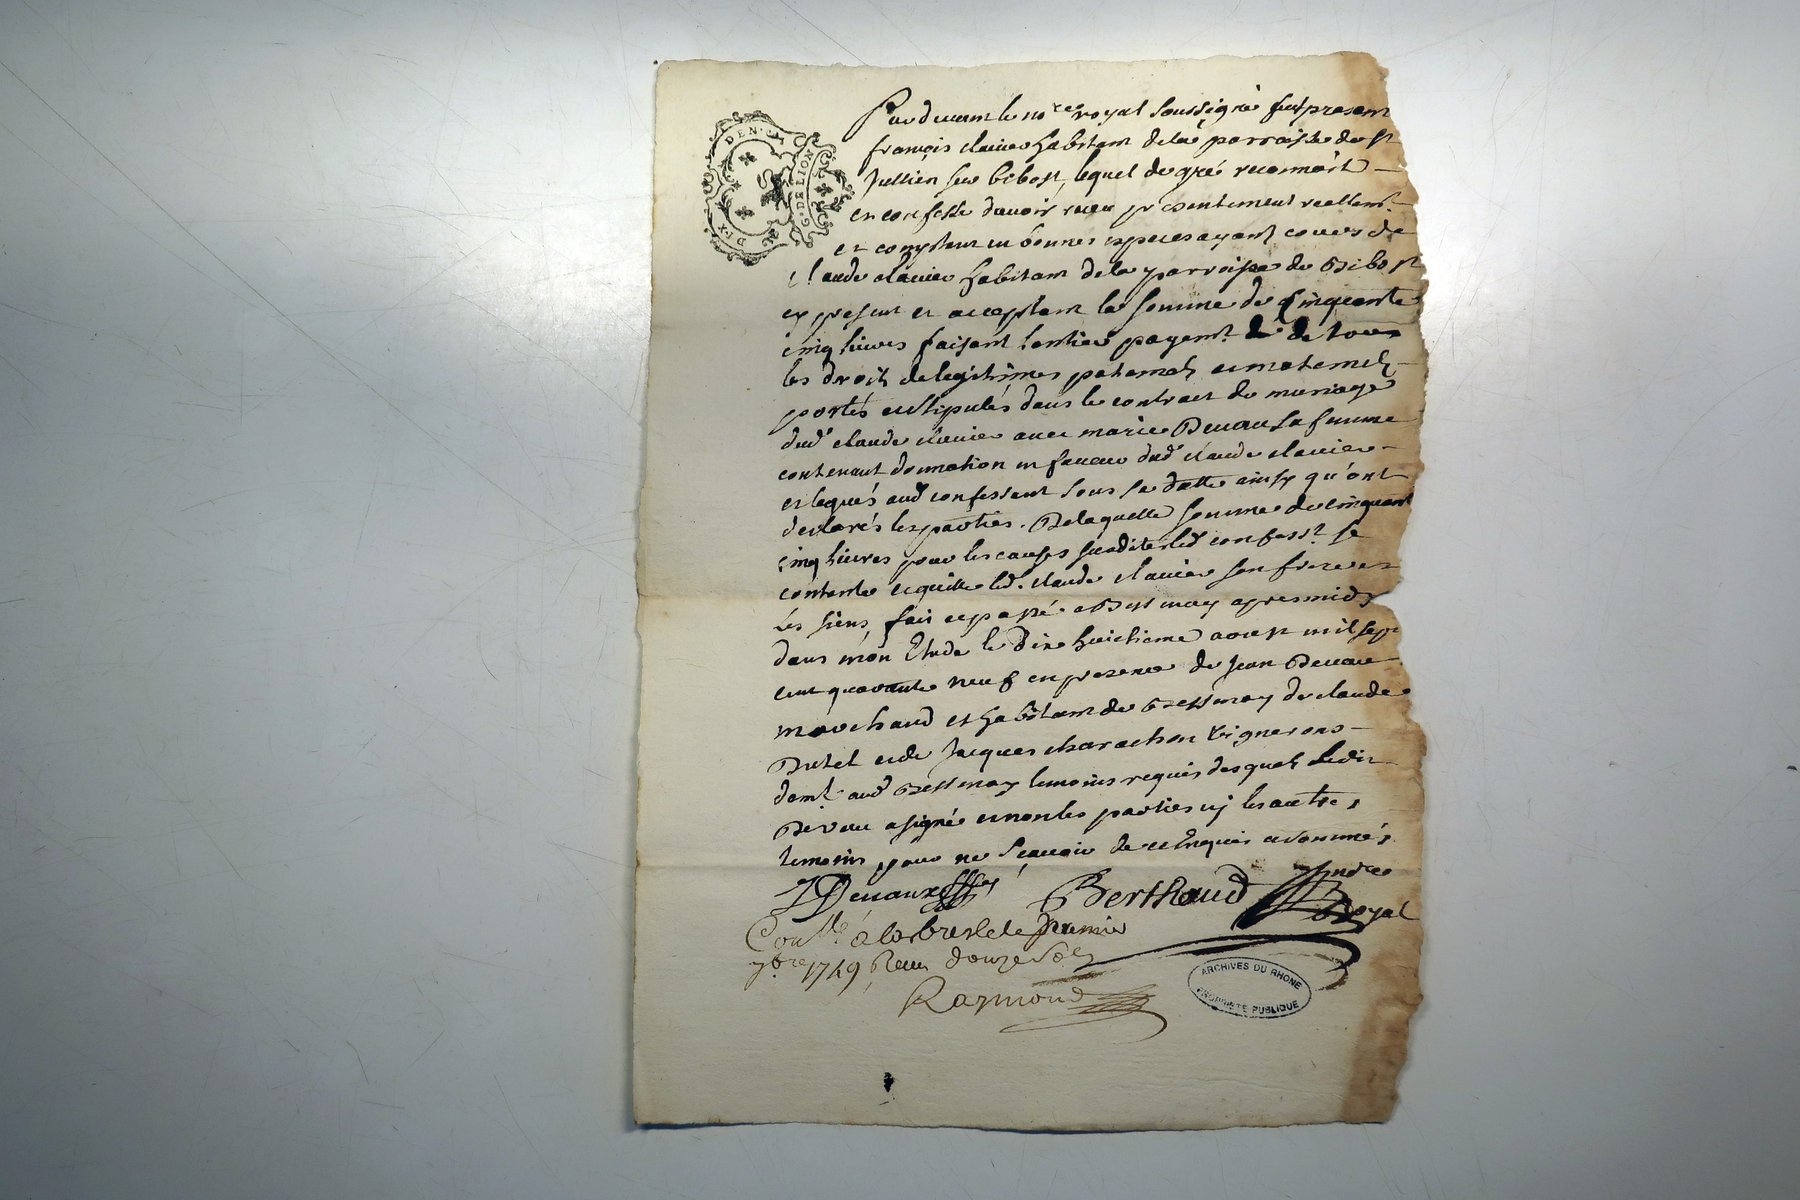 DIX DEN.
G. DE LION
Par devant le no.re royal soussigné fut present
françois clavier habitant de la parroisse de st
Jullien sur bibost, lequel de gré reconnoit
en confesse d'avoir receu presentement reellemt.
et comptant en bonnes especes ayant cours de
Claude clavier habitant de la parroisse de Bibost
cy present et acceptant la somme de Cinquante
cinq livres faisant lentier payemt. de tous
les droits de legitimes paternels et maternels
portés et stipulés dans le contract de mariage
dud. claude clavier avec marie Devaux sa femme
contenant donnation en faveur dud. claude clavier
et legués aud confessant sous sa datte ainsy qu'ont
declarés les parties. De laquelle somme de cinquante
cinq livres pour les causes susdites led confesst. se
contente et quitte led. claude clavier son frere et
les siens, fait et passé a Bessenay apres midy
dans mon Etude le Dix huictieme aoust mil sept
cent quarante neuf en presence de Jean Devaux
marchand et habitant de Bessenay de claude
Dutel et de Jacques charachon Vignerons
demt. aud Bessenay temoins requis desquels ledit
Devaux a signé et non les parties nj les autres
temoins pour ne sçavoir de ce Enquis et sommés.
JDevaux Berthaud no.re
Royal
Con.lle à labresle le premier
7bre 1749, Receu douze sols
Raymond
ARCHIVES DU RHONE
PROPRIETE PUBLIQUE